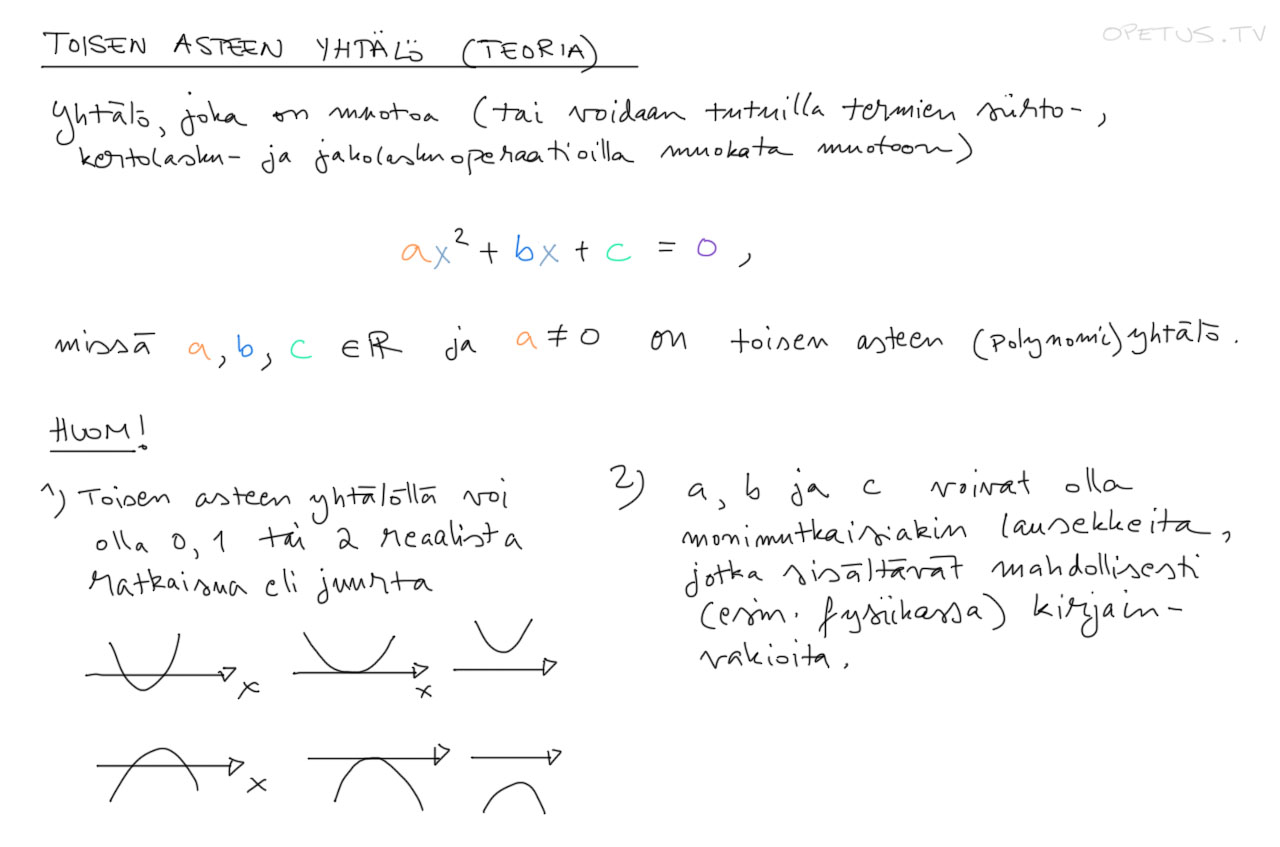 TOISEN ASTEEN YHTÄLÖ (TEORIA)
OPETUS.TV
Yhtälö, joka on muotoa (tai voidaan tutuilla termien siirto-,
kertolasku- ja jakolaskuoperaatioilla muokata muotoon)
ax² + bx + c = 0,
missä a, b, c ∈ ℝ ja a ≠ 0 on toisen asteen (polynomi)yhtälö.
HUOM!
1) Toisen asteen yhtälöllä voi
olla 0, 1 tai 2 reaalista
ratkaisua eli juurta
x
x
x
2) a, b ja c voivat olla
monimutkaisiakin lausekkeita,
jotka sisältävät mahdollisesti
(esim. fysiikassa) kirjain-
vakioita.